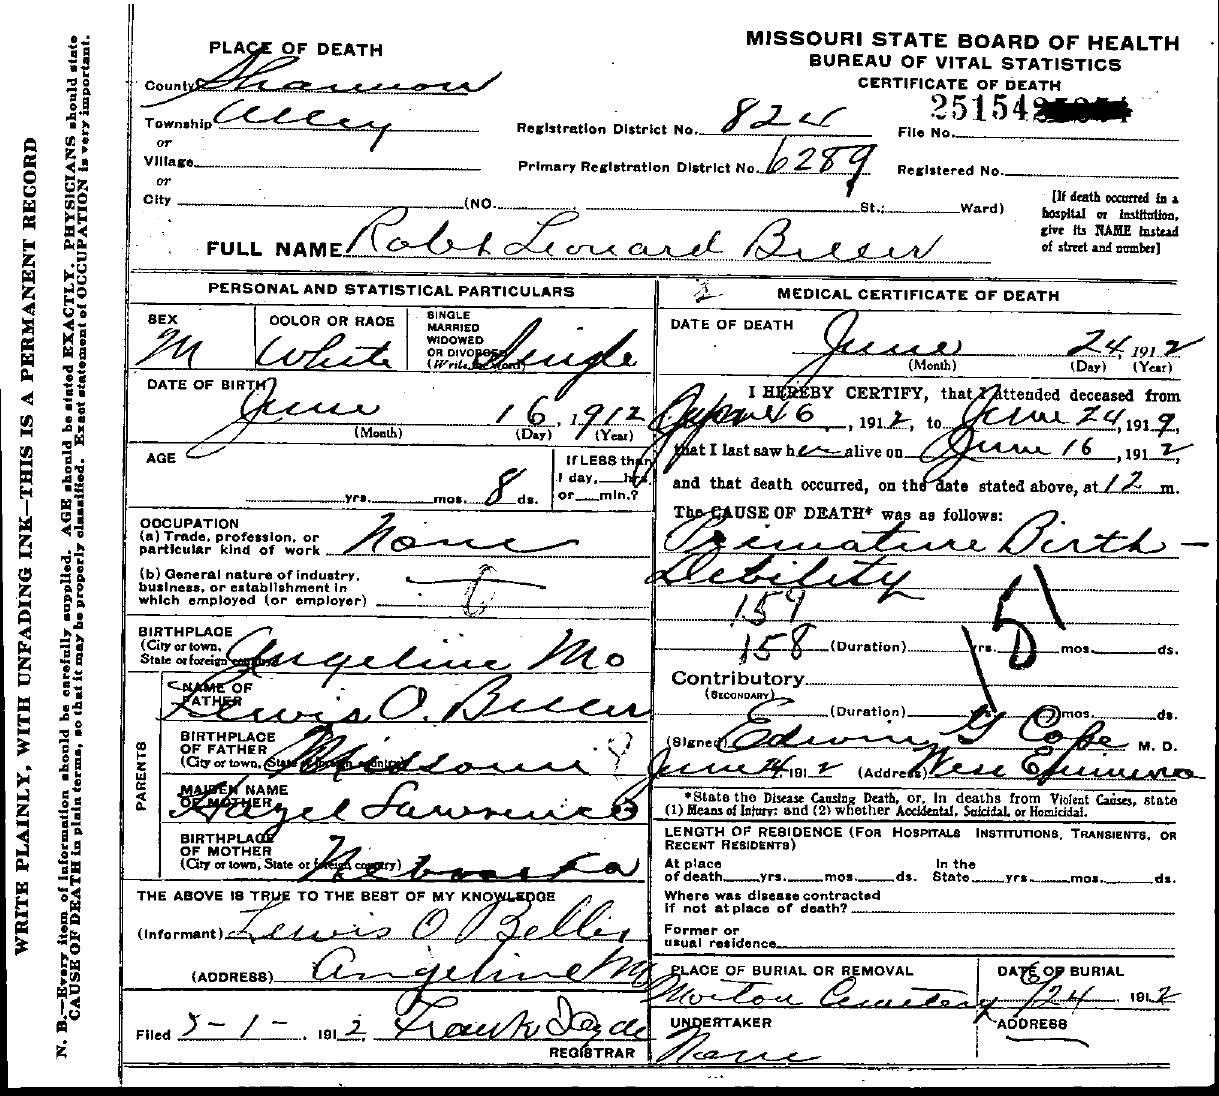 PLACE OF DEATH
County Shannon
Township Alley
or
Village
or
City (NO. St.; Ward)
MISSOURI STATE BOARD OF HEALTH
BUREAU OF VITAL STATISTICS
CERTIFICATE OF DEATH
25154
Registration District No. 824 File No.
Primary Registration District No. 6289 Registered No.
[If death occurred in a
hospital or institution,
give its NAME instead
of street and number]
FULL NAME Robt Leonard
PERSONAL AND STATISTICAL PARTICULARS
SEX
M
COLOR OR RACE
White
SINGLE
MARRIED
WIDOWED
OR DIVORCED
(Write the word)
Single
DATE OF BIRTH
June 16, 1912
(Month) (Day) (Year)
AGE
yrs. mos. 8 ds.
If LESS than
1 day, hrs.
or min.?
OCCUPATION
(a) Trade, profession, or
particular kind of work None
(b) General nature of industry,
business, or establishment in
which employed (or employer)
BIRTHPLACE
(City or town,
State or foreign country) Angeline Mo
PARENTS
NAME OF
FATHER
Lewis O.
BIRTHPLACE
OF FATHER
(City or town, State or foreign country) Missouri
MAIDEN NAME
OF MOTHER
Hazel Lawrence
BIRTHPLACE
OF MOTHER
(City or town, State or foreign country) Nebraska
THE ABOVE IS TRUE TO THE BEST OF MY KNOWLEDGE
(Informant) Lewis O
(ADDRESS) Angeline Mo
Filed 5-1-, 1912 Frank
REGISTRAR
2
MEDICAL CERTIFICATE OF DEATH
DATE OF DEATH
June 24, 1912
(Month) (Day) (Year)
I HEREBY CERTIFY, that I attended deceased from
16, 1912, to June 24, 191
that I last saw h alive on June 16, 1912,
and that death occurred, on the date stated above, at 12 m.
The CAUSE OF DEATH* was as follows:
Premature Birth -
Debility
159
158 (Duration) yrs. mos. ds.
151
D
Contributory
(SECONDARY)
(Duration) yrs. mos. ds.
(Signed) Edwin G Cope M. D.
June 24, 1912 (Address) West Eminence
*State the Disease Causing Death, or, in deaths from Violent Causes, state
(1) Means of Injury; and (2) whether Accidental, Suicidal, or Homicidal.
LENGTH OF RESIDENCE (FOR HOSPITALS INSTITUTIONS, TRANSIENTS, OR
RECENT RESIDENTS)
At place In the
of death yrs. mos. ds. State yrs. mos. ds.
Where was disease contracted
if not at place of death?
Former or
usual residence
PLACE OF BURIAL OR REMOVAL
Morton Cemetery
DATE OF BURIAL
6/24 1912
UNDERTAKER
None
ADDRESS
WRITE PLAINLY, WITH UNFADING INK—THIS IS A PERMANENT RECORD
N. B.—Every item of information should be carefully supplied. AGE should be stated EXACTLY. PHYSICIANS should state
CAUSE OF DEATH in plain terms, so that it may be properly classified. Exact statement of OCCUPATION is very important.